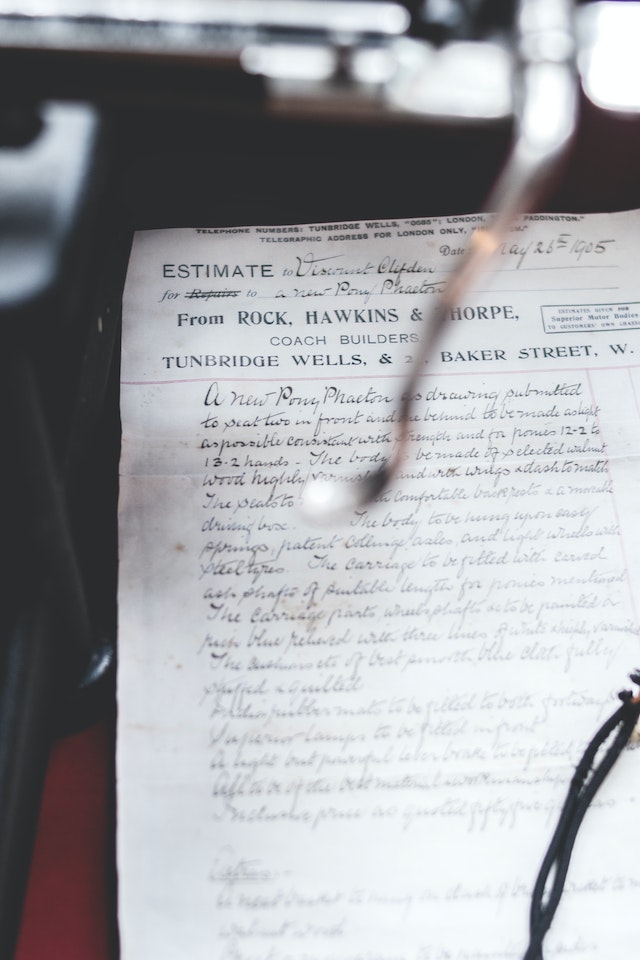 TELEPHONE NUMBERS: TUNBRIDGE WELLS, "0085"; LONDON, PADDINGTON."
TELEGRAPHIC ADDRESS FOR LONDON ONLY,
Date May 26th 1905
ESTIMATE to Viscount Clifden
for Repairs to a new Pony Phaeton
From ROCK, HAWKINS & THORPE,
ESTIMATES GIVEN FOR
Superior Motor Bodies
TO CUSTOMERS' OWN
COACH BUILDERS
TUNBRIDGE WELLS, & BAKER STREET, W.
A new Pony Phaeton as drawing submitted
to seat two in front and one behind to be made as light
as possible consistent with strength and for ponies 12-2 to
13-2 hands - The body to be made of selected walnut
wood highly varnished and with wings & dash to match
The seats to comfortable backrests & a movable
driving box. The body to be hung upon easy
springs, patent Collinge axles, and light wheels with
steel tyres. The carriage to be fitted with carved
ash shafts of suitable length for ponies mentioned
The carriage parts, wheels shafts &c to be painted a
rich blue relieved with three lines of white & highly varnished
The cushions etc of best smooth blue cloth fully
stuffed & quilted
rubber mats to be fitted to both footways
Superior lamps to be fitted in front
A light but powerful lever brake to be fitted
All to be of the best material & workmanship
Inclusive price as quoted fifty five
Extras:-
A neat basket to hang on dash of
walnut wood